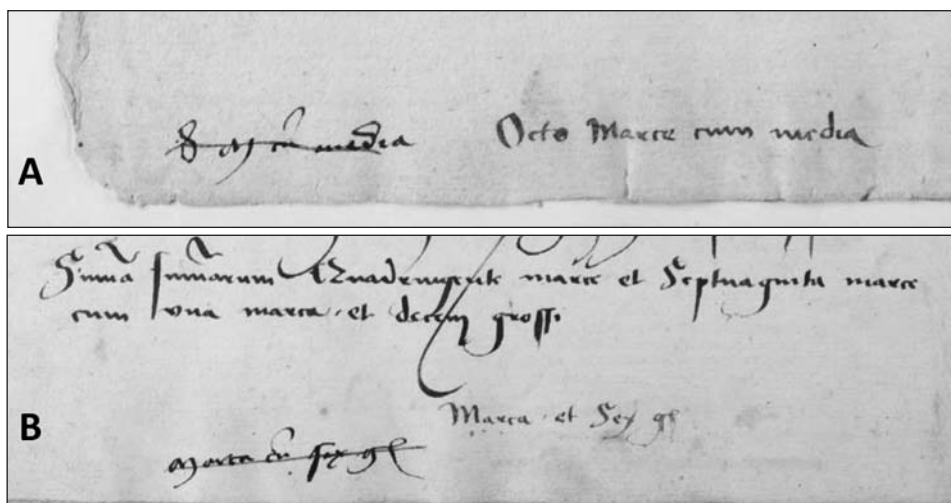 A
8 m cū media Octo Marce cum media
Suma sumarum Quadringente marce et Septuaginta marce
cum una marca et decem grossi
B
Marca et Sex gl
marca cū sex gl